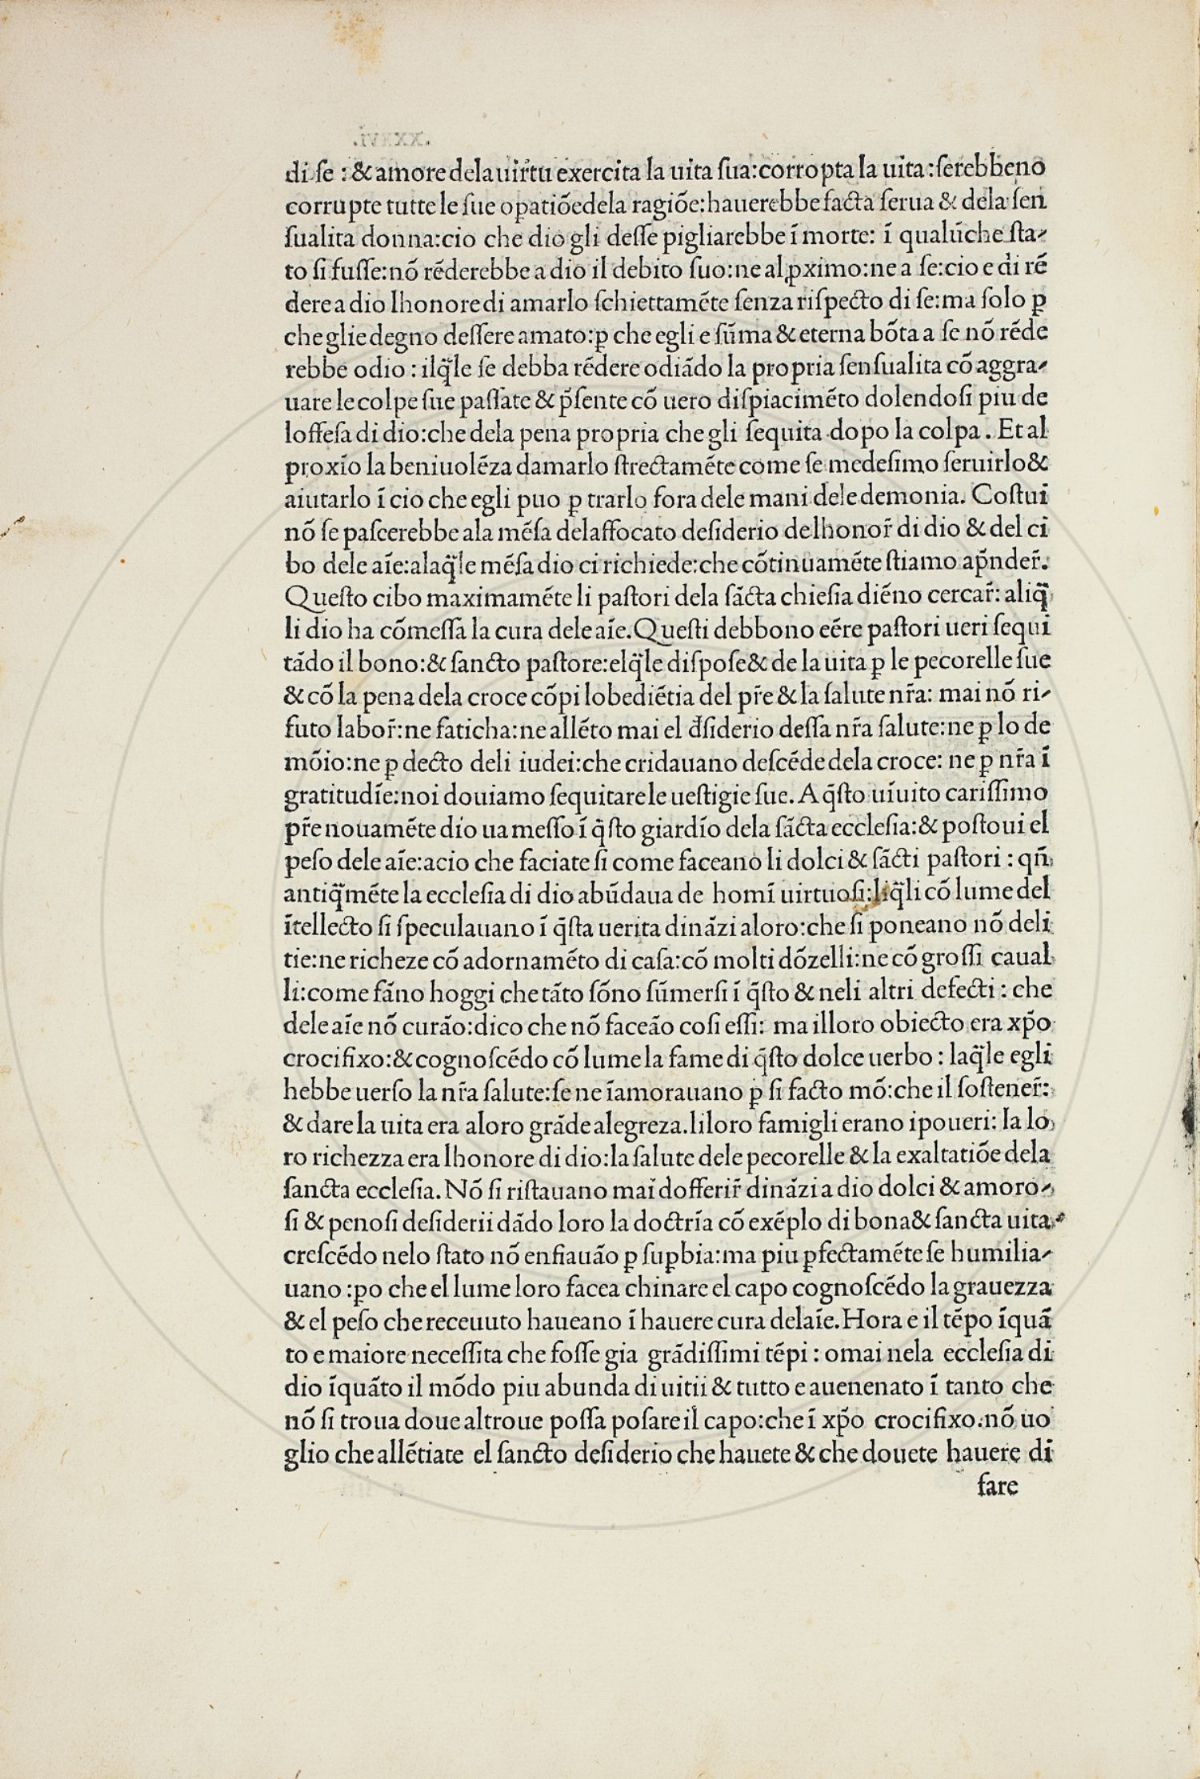 di se : & amore dela uirtu exercita la uita sua:corropta la uita :serebbeno
corrupte tutte le sue opatiõe dela ragiõe:hauerebbe facta serua & dela sen
sualita donna:cio che dio gli desse pigliarebbe ĩ morte: ĩ qualũche sta-
to si fusse:nõ rẽderebbe a dio il debito suo:ne al ꝓximo:ne a se:cio e di rẽ
dere a dio lhonore di amarlo schiettamẽte senza rispecto di se:ma solo ꝑ
che glie degno dessere amato:ꝑ che egli e sũma & eterna bõta a se nõ rẽde
rebbe odio : ilq̃le se debba rẽdere odiãdo la propria sensualita cõ aggra-
uare le colpe sue passate & p̃sente cõ uero dispiacimẽto dolendosi piu de
loffesa di dio:che dela pena propria che gli sequita dopo la colpa . Et al
proxĩo la beniuolẽza damarlo strectamẽte come se medesimo seruirlo &
aiutarlo ĩ cio che egli puo ꝑ trarlo fora dele mani dele demonia. Costui
nõ se pascerebbe ala mẽsa delaffocato desiderio delhonor̃ di dio & del ci
bo dele aĩe:alaq̃le mẽsa dio ci richiede:che cõtinuamẽte stiamo ap̃nder̃.
Questo cibo maximamẽte li pastori dela sãcta chiesia diẽno cercar̃: aliq̃
li dio ha cõmessa la cura dele aĩe. Questi debbono eẽre pastori ueri sequi
tãdo il bono:& sancto pastore:elq̃le dispose & de la uita ꝑ le pecorelle sue
& cõ la pena dela croce cõpi lobediẽtia del pr̃e & la salute nr̃a: mai nõ ri-
futo labor̃:ne faticha:ne allẽto mai el d̃siderio dessa nr̃a salute:ne ꝑ lo de
mõio:ne ꝑ decto deli iudei:che cridauano descẽde dela croce: ne ꝑ nr̃a ĩ
gratitudĩe:noi douiamo sequitare le uestigie sue. A q̃sto uĩuito carissimo
pr̃e nouamẽte dio ua messo ĩ q̃sto giardĩo dela sãcta ecclesia:& postoui el
peso dele aĩe:acio che faciate si come faceano li dolci & sãcti pastori : qñ
antiq̃mẽte la ecclesia di dio abũdaua de homĩ uirtuosi:liq̃li cõ lume del
ĩtellecto si speculauano ĩ q̃sta uerita dinãzi aloro:che si poneano nõ deli
tie:ne richeze cõ adornamẽto di casa:cõ molti dõzelli:ne cõ grossi caual
li:come fãno hoggi che tãto sõno sũmersi ĩ q̃sto & neli altri defecti : che
dele aĩe nõ curão:dico che nõ faceão cosi essi: ma illoro obiecto era xp̃o
crocifixo:& cognoscẽdo cõ lume la fame di q̃sto dolce uerbo : laq̃le egli
hebbe uerso la nr̃a salute:se ne ĩamorauano ꝑ si facto mõ:che il sostener̃:
& dare la uita era aloro grãde alegreza.liloro famigli erano i poueri: la lo
ro richezza era lhonore di dio:la salute dele pecorelle & la exaltatiõe dela
sancta ecclesia. Nõ si ristauano mai dofferir̃ dinãzi a dio dolci & amoro-
si & penosi desiderii dãdo loro la doctrĩa cõ exẽplo di bona & sancta uita
crescẽdo nelo stato nõ enfiauão ꝑ suꝑbia:ma piu ꝑfectamẽte se humilia-
uano :po che el lume loro facea chinare el capo cognoscẽdo la grauezza
& el peso che receuuto haueano ĩ hauere cura delaĩe. Hora e il tẽpo ĩquã
to e maiore necessita che fosse gia grãdissimi tẽpi : omai nela ecclesia di
dio ĩquãto il mõdo piu abunda di uitii & tutto e auenenato ĩ tanto che
nõ si troua doue altroue possa posare il capo:che ĩ xp̃o crocifixo.nõ uo
glio che allẽtiate el sancto desiderio che hauete & che douete hauere di
fare